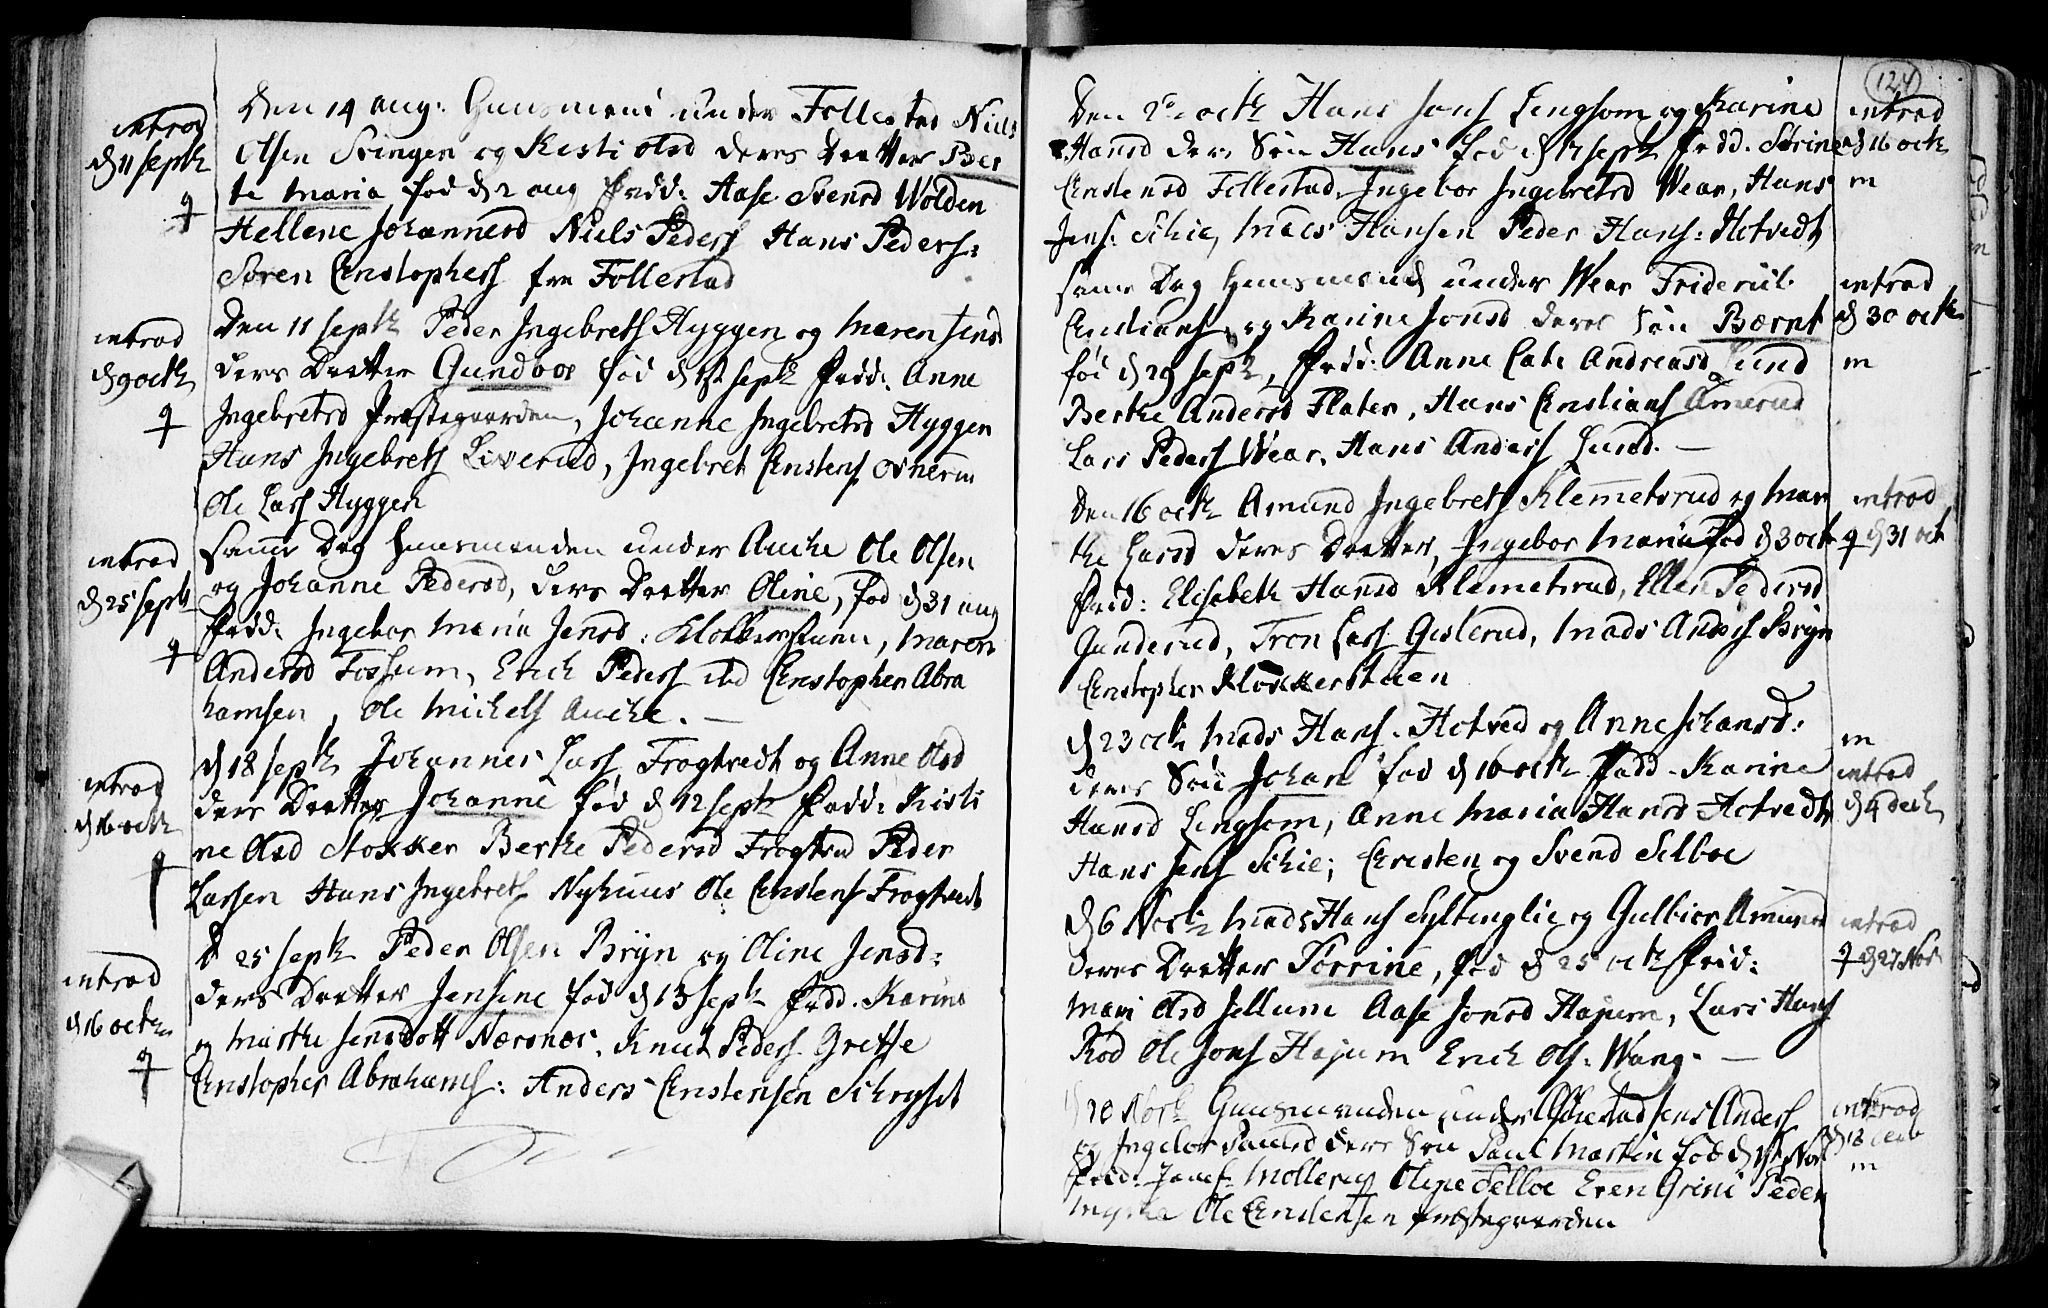 introd
d 11 septr
Den 14 aug: Huusmand under Follestad Niels
Olsen Svingen og Kisti Olsd deres Datter Ber
te Maria fød d 2 aug Fadd: Aase Svensd Wolden
Hellene Johannesd Niels Peders Hans Peders:
Søren Christophers fra Follestad
introd
d 9 octr
Den 11 septr Peder Ingebrets Hyggen og Maren Jensd
deres Datter Gundbor fød d 1st septr Fadd: Anne
Ingebretsd Præstegaarden, Johanne Ingebretsd Hyggen
Hans Ingebrets Liverud, Ingebret Christens
Ole Lars Hyggen
introd
d 25 septr
samme Dag Huusmanden under Auche Ole Olsen
og Johanne Pedersd, deres Datter Oline, fød d 31 aug
Fadd: Ingebor Maria Jensd: Klokkerstuen, Maren
Andersd Fossum, Erich Peders ibd Christopher Abra
hamsen, Ole Michels Auche. —
introd
d 16 octr
d 18 septr Johannes Lars Frogtvedt og Anne Olsd
deres Datter Johanne fød d 12 septr Fadd: Kisti
ne Olsd Stokker Berthe Pedersd Frogtved Peder
Larsen Hans Ingebrets Nyhuus Ole Christens Frogtvedt
introd
d 16 octr
d 25 septr Peder Olsen Brÿn og Oline Jensd:
deres Datter Jensine fød d 13 septr Fadd. Karine
og Marthe Jensdott Nærsnæs, Knud Peders Grette
Christopher Abrahams: Anders Christensen Schryset
124
introd
d 16 octr
m
Den 2de octr Hans Jens Lingsom og Karine
Hansd deres Søn Hans fød d septr Fadd. Sørine
Christensd Follestad, Ingebor Ingebretsd Wear, Hans
Jens: Schie, Mads Hansen Peder Hans: Hotvedt
introd
d 30 octr
m
samme Dag Huusmand under Wear Friderich
Christians og Karine Jonsd deres Søn Bærnt
fød d 29 septr, Fadd: Anne Cate Andreasd Lund
Berthe Andersd Flaten, Hans Christians Amerud
Lars Peders Wear, Hans Anders Lund. —
introd
d 31 oct
Den 16 octr Amund Ingebrets Klemmetsrud og Mar
the Larsd deres Datter, Ingebor Maria fød d 3 octr
Fadd: Elisabeth Hansd Klemetsrud, Ellen Pedersd
Gunderud, Tron Lars Gisterud, Mads Anders Brÿn
Christopher Klokkerstuen
m
introd
d 4 decb
d 23 octr Mads Hans. Hotved og Anne Johansd:
deres Søn Johan fød d 16 octr Fadd. Karine
Hansd Lingsom, Anne Maria Hansd Hotvedt
Hans Jens Schie; Christen og Svend Selboe
introd
d 27 Nov
d 6 Novbr Mads Hans Sÿltinglie og Gulbior Amunds
deres Datter Torrine, fød d 25 octr Fadd:
Mari Olsd Jellum Aase Jonsd Hajum, Lars Hans
Rød Ole Jons Hajum Erich Ols: Wang. —
introd
d 18 decb
m
d 20 Novbr Huusmanden under Jens Anders
og Ingebor Paulsd deres Søn Paul Martin fød d Nov
Fadd: Møllerup Selboe Even Grini Peder
Ole Christensen Præstegaarden